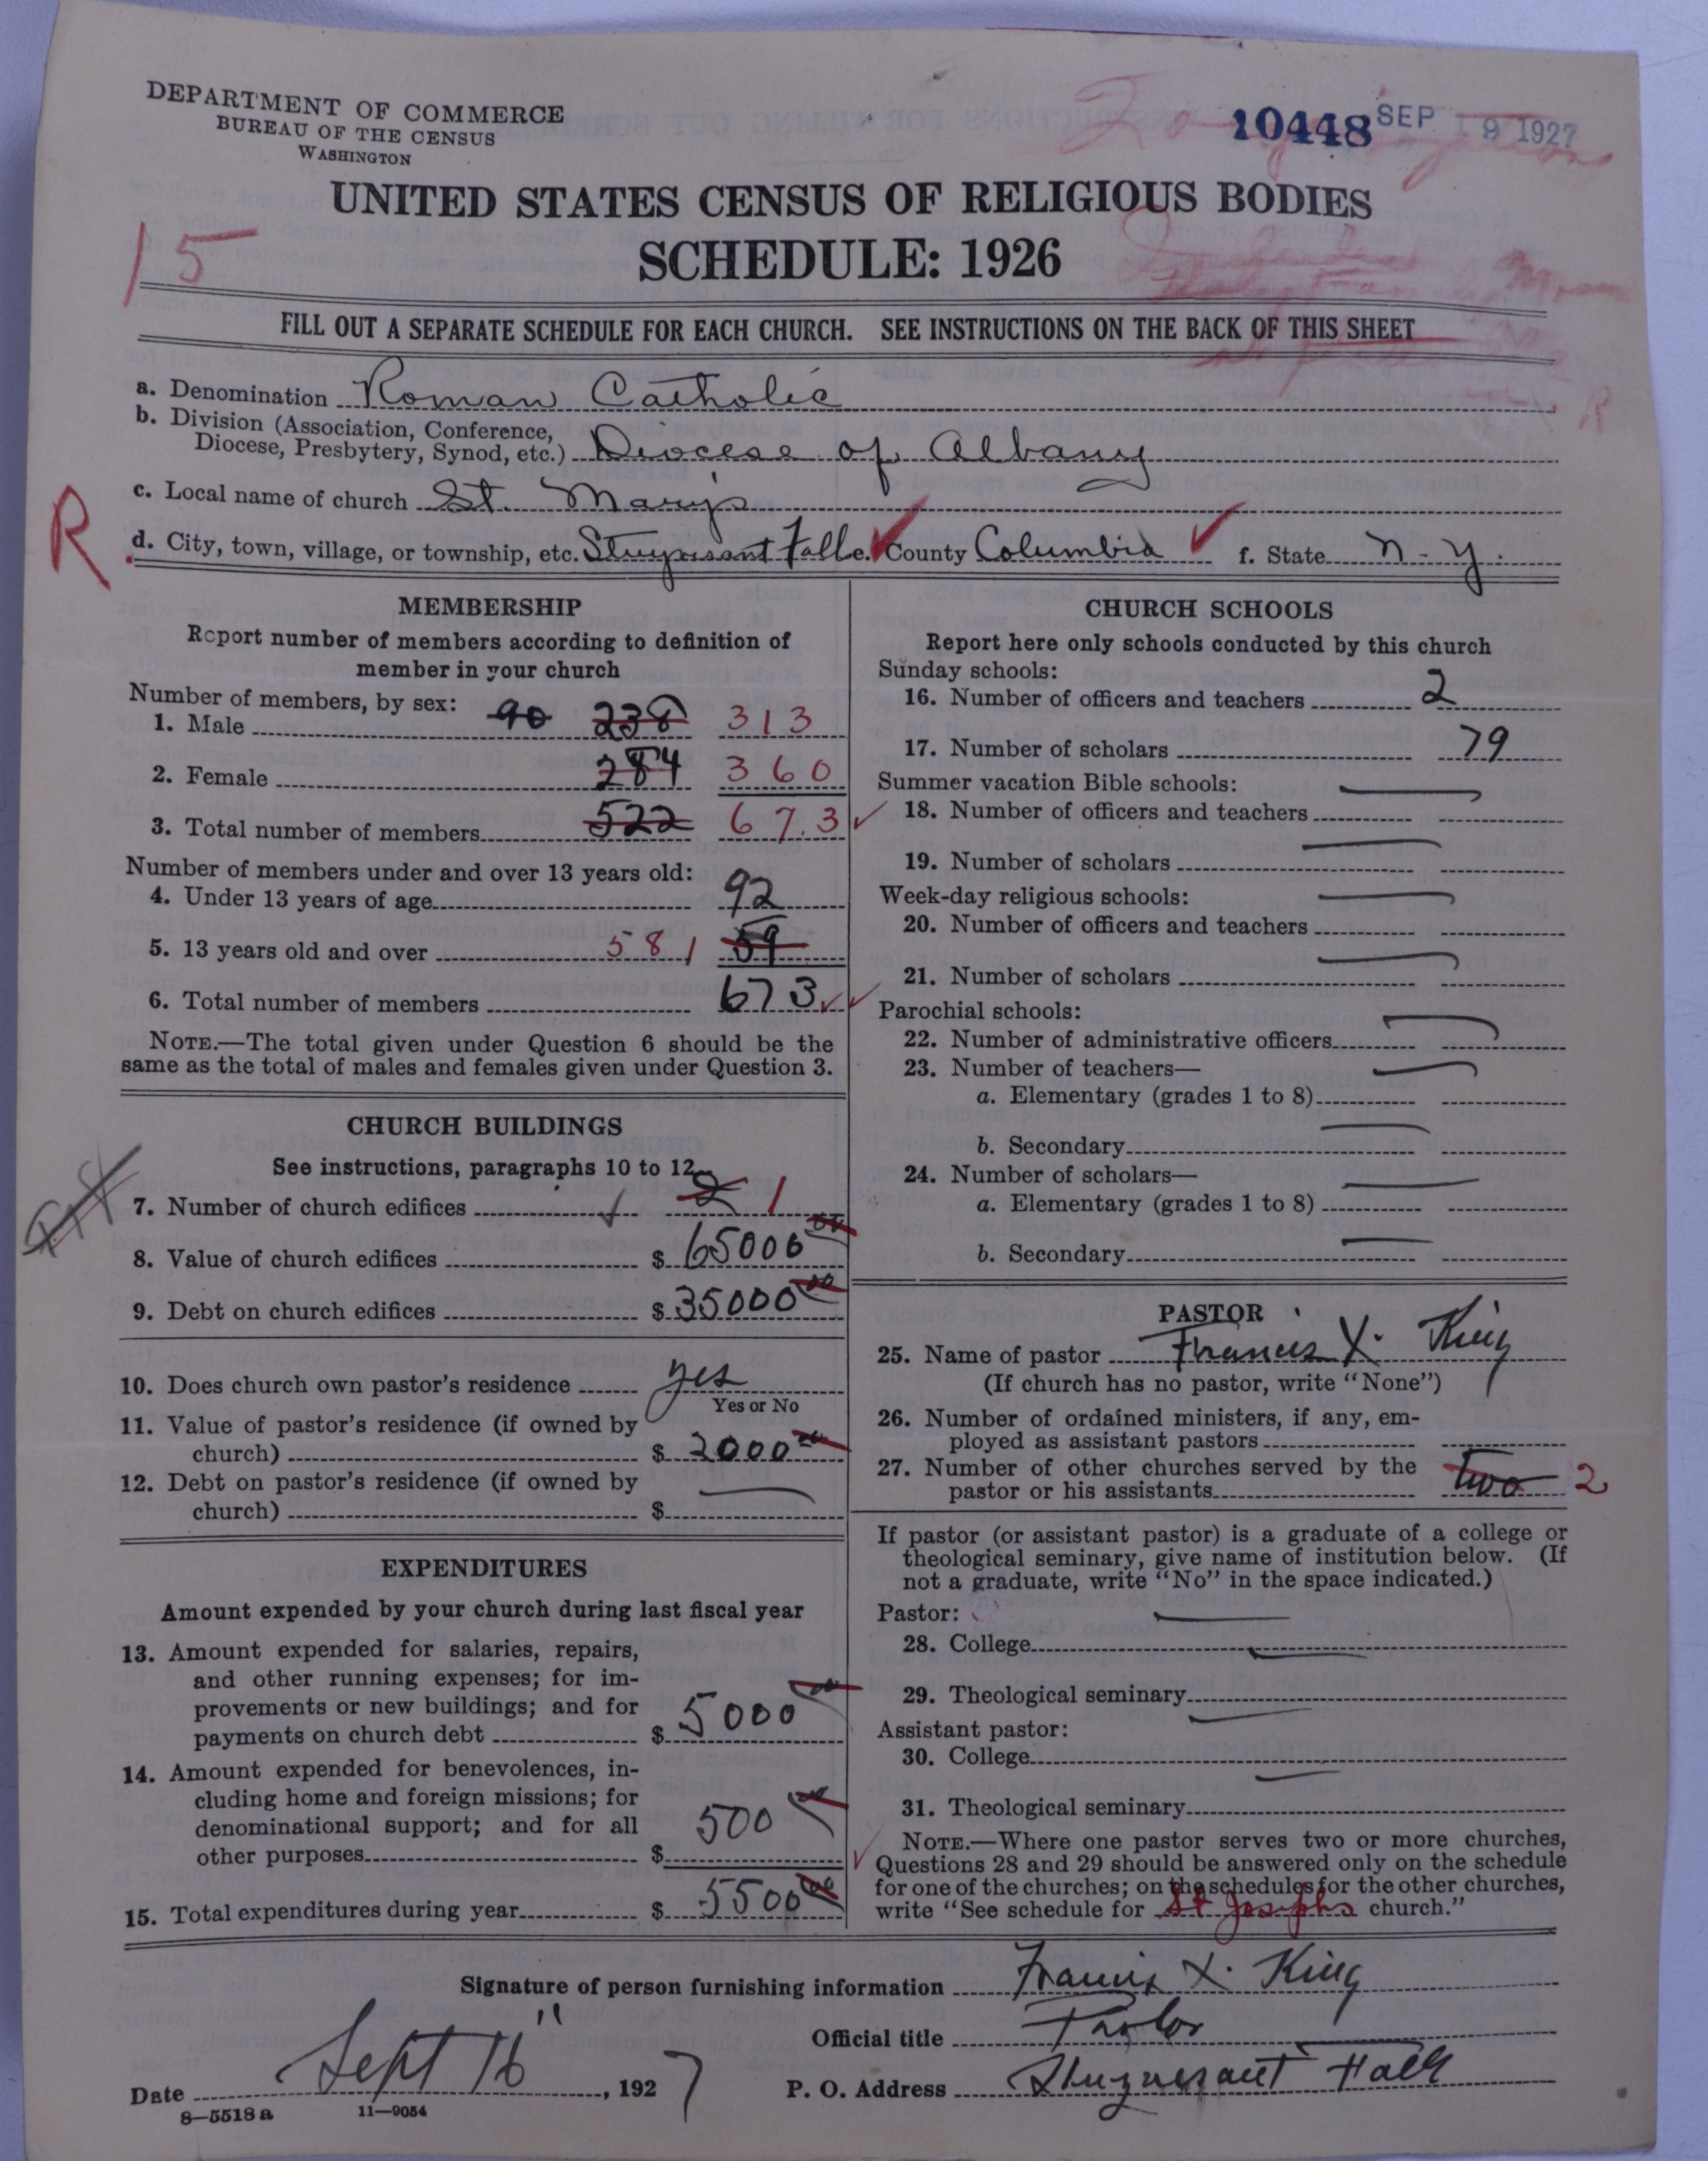 DEPARTMENT OF COMMERCE
BUREAU OF THE CENSUS
WASHINGTON
10448 SEP 19 1927
UNITED STATES CENSUS OF RELIGIOUS BODIES
15
SCHEDULE: 1926
FILL OUT A SEPARATE SCHEDULE FOR EACH CHURCH. SEE INSTRUCTIONS ON THE BACK OF THIS SHEET
a. Denomination Roman Catholic
R
b. Division (Association, Conference,
Diocese, Presbytery, Synod, etc.) Diocese of Albany
c. Local name of church St. Mary's
R
d. City, town, village, or township, etc. Stuyvesant Falls e. County Columbia f. State N. Y.
MEMBERSHIP
Report number of members according to definition of
member in your church
Number of members, by sex:
1. Male 90 238 313
2. Female 284 360
3. Total number of members 522 673
Number of members under and over 13 years old:
4. Under 13 years of age 92
5. 13 years old and over 581 59
6. Total number of members 673
NOTE.—The total given under Question 6 should be the
same as the total of males and females given under Question 3.
CHURCH BUILDINGS
See instructions, paragraphs 10 to 12
7. Number of church edifices 2 1
8. Value of church edifices $ 65000 00
9. Debt on church edifices $ 35000 00
10. Does church own pastor's residence yes
Yes or No
11. Value of pastor's residence (if owned by
church) $ 2000 00
12. Debt on pastor's residence (if owned by
church) $
EXPENDITURES
Amount expended by your church during last fiscal year
13. Amount expended for salaries, repairs,
and other running expenses; for im-
provements or new buildings; and for
payments on church debt $ 5000 00
14. Amount expended for benevolences, in-
cluding home and foreign missions; for
denominational support; and for all
other purposes $ 500 00
15. Total expenditures during year $ 5500 00
CHURCH SCHOOLS
Report here only schools conducted by this church
Sunday schools:
16. Number of officers and teachers 2
17. Number of scholars 79
Summer vacation Bible schools:
18. Number of officers and teachers
19. Number of scholars
Week-day religious schools:
20. Number of officers and teachers
21. Number of scholars
Parochial schools:
22. Number of administrative officers
23. Number of teachers—
a. Elementary (grades 1 to 8)
b. Secondary
24. Number of scholars—
a. Elementary (grades 1 to 8)
b. Secondary
PASTOR
25. Name of pastor Francis X. King
(If church has no pastor, write "None")
26. Number of ordained ministers, if any, em-
ployed as assistant pastors
27. Number of other churches served by the
pastor or his assistants two 2
If pastor (or assistant pastor) is a graduate of a college or
theological seminary, give name of institution below. (If
not a graduate, write "No" in the space indicated.)
Pastor:
28. College
29. Theological seminary
Assistant pastor:
30. College
31. Theological seminary
NOTE.—Where one pastor serves two or more churches,
Questions 28 and 29 should be answered only on the schedule
for one of the churches; on the schedules for the other churches,
write "See schedule for St Josephs church."
Signature of person furnishing information Francis X. King
Official title Pastor
Date Sept 16", 1927
P. O. Address Stuyvesant Falls
8—5518 a 11—9054